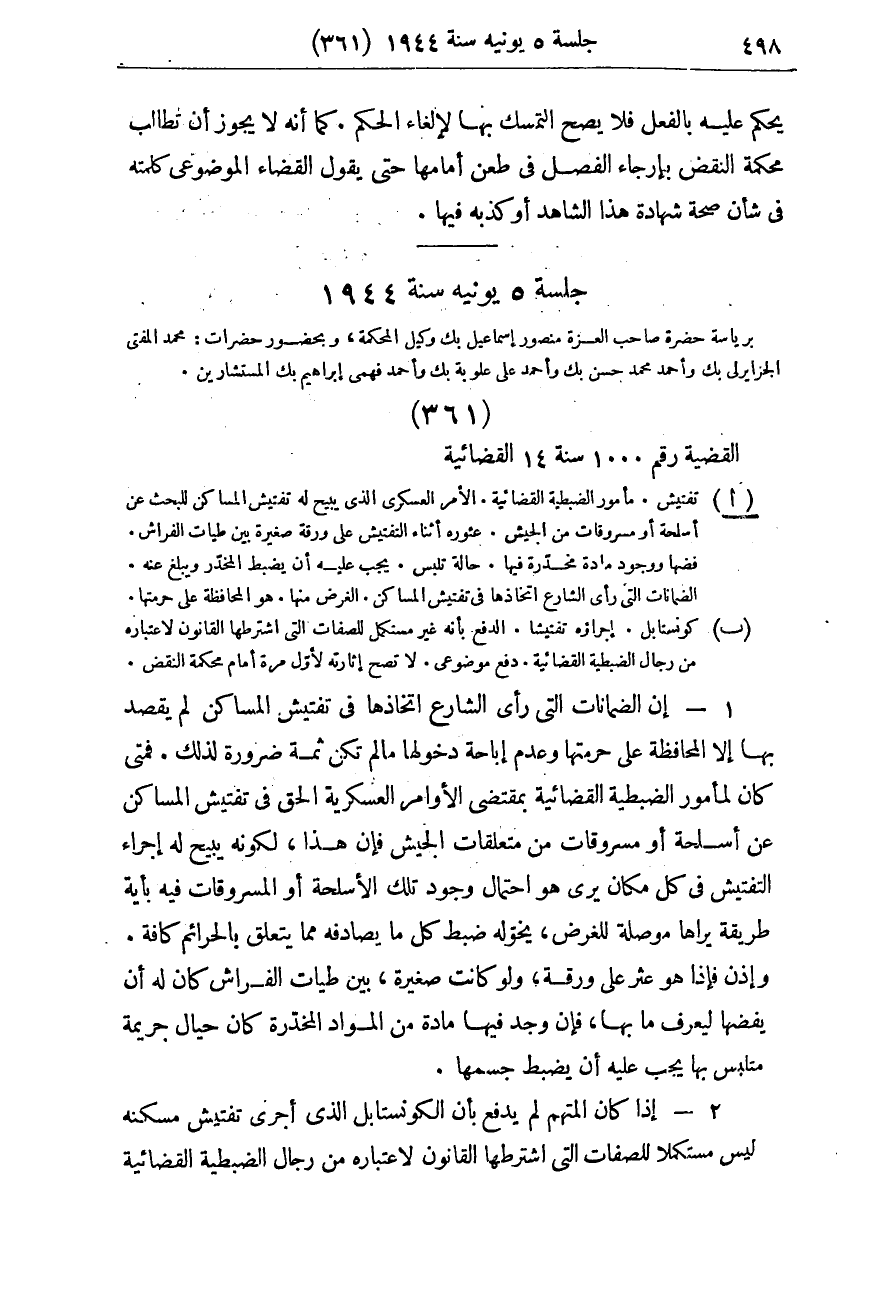 ٤٩٨ جلسة ٥ يونيه سنة ١٩٤٤ (٣٦١)
يحكم عليه بالفعل فلا يصح التمسك بها لإلغاء الحكم . كما أنه لا يجوز أن تطالب
محكمة النقض بإرجاء الفصل فى طعن أمامها حتى يقول القضاء الموضوعى كلمته
فى شأن صحة شهادة هذا الشاهد أو كذبه فيها .
جلسة ٥ يونيه سنة ١٩٤٤
برياسة حضرة صاحب العزة منصور إسماعيل بك وكيل المحكمة، وبحضور حضرات : محمد المفتى
الجزايرلى بك وأحمد محمد حسن بك وأحمد على علوبة بك وأحمد فهمى إبراهيم بك المستشارين .
(٣٦١)
القضية رقم ١٠٠٠ سنة ١٤ القضائية
(أ) تفتيش . مأمور الضبطية القضائية . الأمر العسكرى الذى يبيح له تفتيش المساكن للبحث عن
أسلحة أو مسروقات من الجيش . عثوره أثناء التفتيش على ورقة صغيرة بين طيات الفراش .
فضها ووجود مادة مخدّرة فيها . حالة تلبس . يجب عليه أن يضبط المخدّر ويبلغ عنه .
الضمانات التى رأى الشارع اتخاذها فى تفتيش المساكن . الغرض منها . هو المحافظة على حرمتها .
(ب) كونستابل . إجراؤه تفتيشا . الدفع بأنه غير مستكمل للصفات التى اشترطها القانون لاعتباره
من رجال الضبطية القضائية . دفع موضوعى . لا تصح إثارته لأوّل مرة أمام محكمة النقض .
١ — إن الضمانات التى رأى الشارع اتخاذها فى تفتيش المساكن لم يقصد
بها إلا المحافظة على حرمتها وعدم إباحة دخولها مالم تكن ثمة ضرورة لذلك . فمتى
كان لمأمور الضبطية القضائية بمقتضى الأوامر العسكرية الحق فى تفتيش المساكن
عن أسلحة أو مسروقات من متعلقات الجيش فإن هذا ، لكونه يبيح له إجراء
التفتيش فى كل مكان يرى هو احتمال وجود تلك الأسلحة أو المسروقات فيه بأية
طريقة يراها موصلة للغرض، يخوّله ضبط كل ما يصادفه مما يتعلق بالجرائم كافة .
وإذن فإذا هو عثر على ورقة، ولو كانت صغيرة ، بين طيات الفراش كان له أن
يفضها ليعرف ما بها، فإن وجد فيها مادة من المواد المخدّرة كان حيال جريمة
متلبس بها يجب عليه أن يضبط جسمها .
٢ — إذا كان المتهم لم يدفع بأن الكونستابل الذى أجرى تفتيش مسكنه
ليس مستكملا للصفات التى اشترطها القانون لاعتباره من رجال الضبطية القضائية